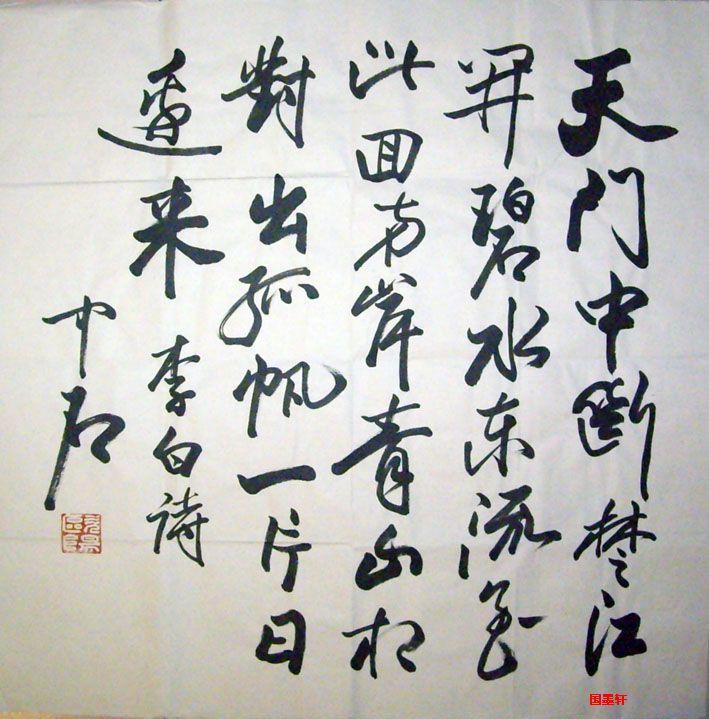 天门中断楚江
開碧水东流至
此回两岸青山相
對出孤帆一片日
邊来 李白诗
中石
国墨轩